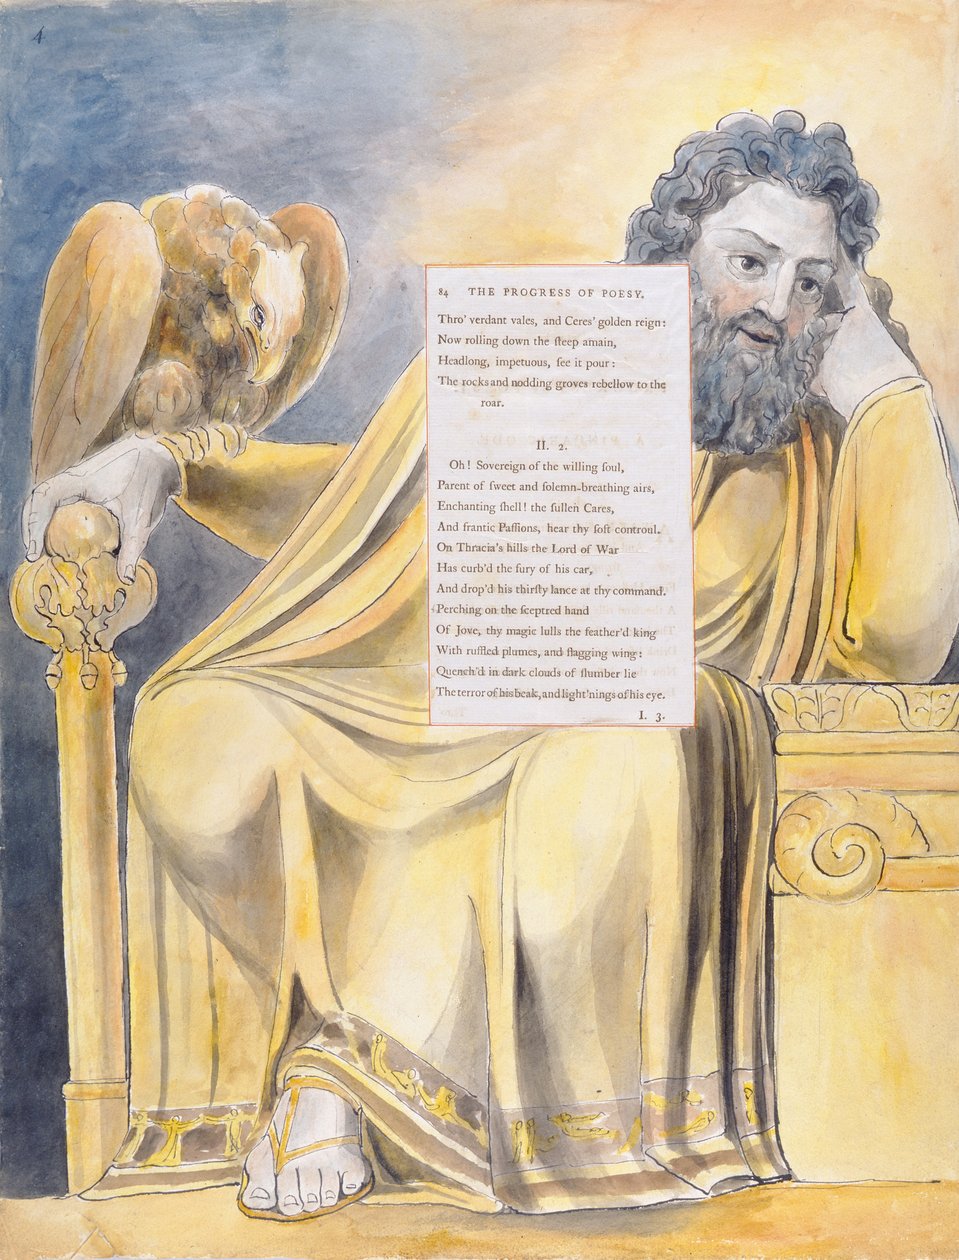 4
84 THE PROGRESS OF POESY.
Thro' verdant vales, and Ceres' golden reign:
Now rolling down the ſteep amain,
Headlong, impetuous, ſee it pour:
The rocks and nodding groves rebellow to the
roar.
II. 2.
Oh! Sovereign of the willing ſoul,
Parent of ſweet and ſolemn-breathing airs,
Enchanting ſhell! the ſullen Cares,
And frantic Paſſions, hear thy ſoft controul.
On Thracia's hills the Lord of War
Has curb'd the fury of his car,
And drop'd his thirſty lance at thy command.
Perching on the ſceptred hand
Of Jove, thy magic lulls the feather'd king
With ruffled plumes, and flagging wing:
Quench'd in dark clouds of ſlumber lie
The terror of his beak, and light'nings of his eye.
I. 3.